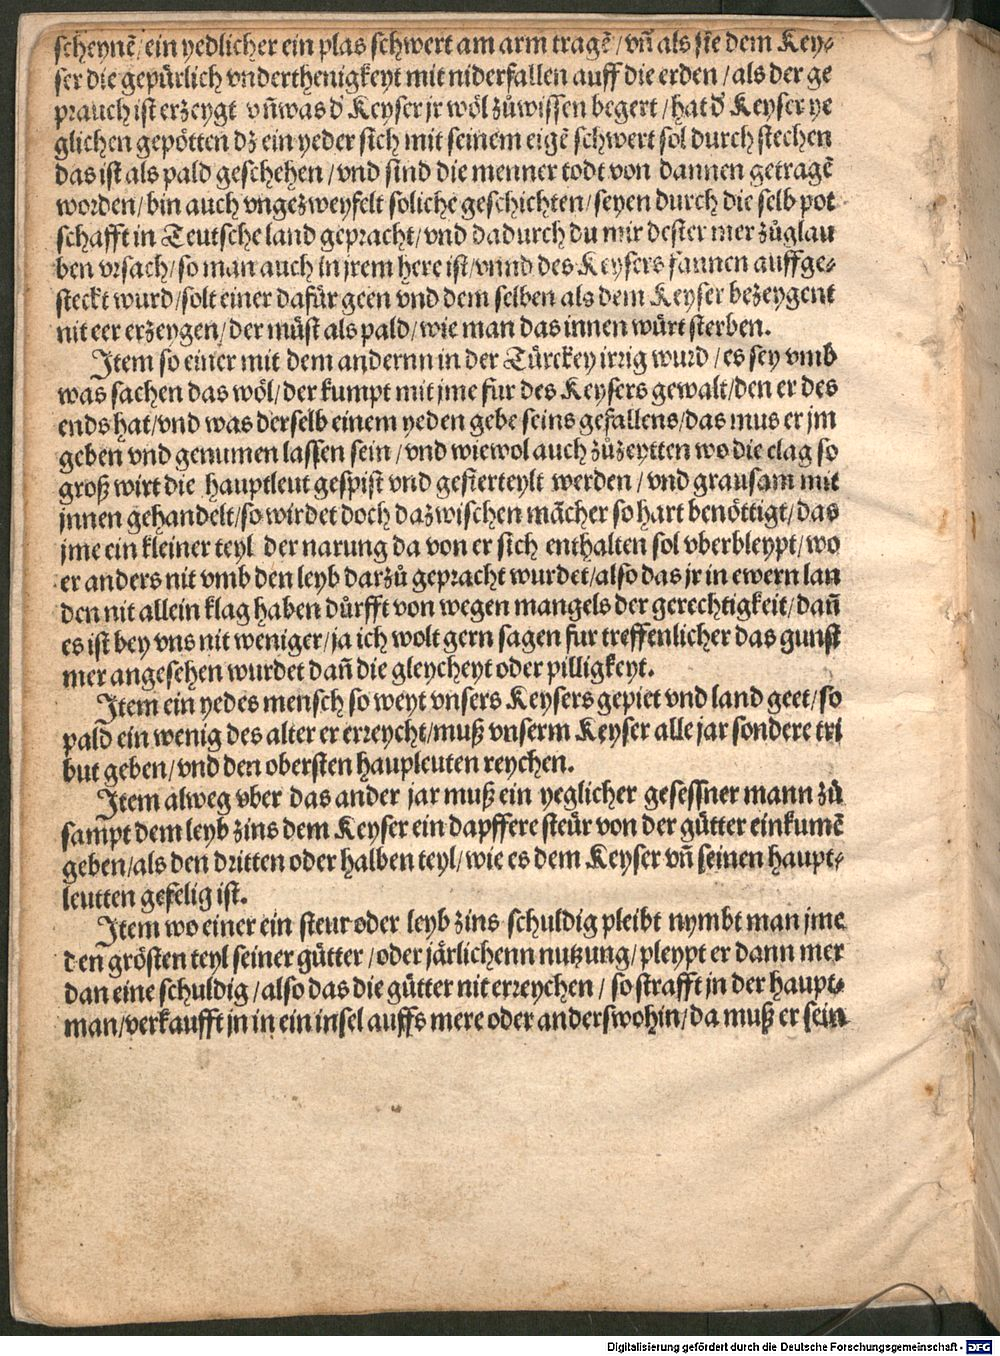 scheynē/ein yedlicher ein plas schwert am arm tragē/vñ als sie dem Key-
ser die gepürlich vnderthenigkeyt mit niderfallen auff die erden/als der ge
prauch ist erzeygt vñ was d' Keyser jr wöl zůwissen begert/hat d' Keyser ye
glichen gepötten dz ein yeder sich mit seinem eigē schwert sol durch stechen
das ist als pald geschehen/vnd sind die menner todt von dannen getragē
worden/bin auch vngezweyfelt soliche geschichten/seyen durch die selb pot
schafft in Teutsche land gepracht/vnd dadurch du mir dester mer zůglau
ben vrsach/so man auch in jrem here ist/vnnd des Keysers fannen auffge-
steckt wurd/solt einer dafür geen vnd dem selben als dem Keyser bezeygent
nit eer erzeygen/der müst als pald/wie man das innen würt sterben.
Item so einer mit dem andernn in der Türckey irrig wurd/es sey vmb
was sachen das wöl/der kumpt mit jme fur des Keysers gewalt/den er des
ends hat/vnd was derselb einem yeden gebe seins gefallens/das mus er jm
geben vnd genumen lassen sein/vnd wiewol auch zůzeytten wo die clag so
groß wirt die hauptleut gespist vnd gefierteylt werden/vnd grausam mit
jnnen gehandelt/so wirdet doch dazwischen mācher so hart benöttigt/das
jme ein kleiner teyl der narung da von er sich enthalten sol vberbleypt/wo
er anders nit vmb den leyb darzů gepracht wurdet/also das jr in ewern lan
den nit allein klag haben důrfft von wegen mangels der gerechtigkeit/dañ
es ist bey vns nit weniger/ja ich wolt gern sagen fur treffenlicher das gunst
mer angesehen wurdet dañ die gleycheyt oder pilligkeyt.
Item ein yedes mensch so weyt vnsers Keysers gepiet vnd land geet/so
pald ein wenig des alter er erreycht/muß vnserm Keyser alle jar sondere tri
but geben/vnd den obersten haupleuten reychen.
Item alweg vber das ander jar muß ein yeglicher gesessner mann zů
sampt dem leyb zins dem Keyser ein dapffere steür von der gütter einkumē
geben/als den dritten oder halben teyl/wie es dem Keyser vñ seinen haupt-
leutten gefelig ist.
Item wo einer ein steur oder leyb zins schuldig pleibt nymbt man jme
den grösten teyl seiner gütter/oder järlichenn nutzung/pleypt er dann mer
dan eine schuldig/also das die gütter nit erreychen/so strafft jn der haupt-
man/verkaufft jn in ein insel auffs mere oder anderswohin/da muß er sein
Digitalisierung gefördert durch die Deutsche Forschungsgemeinschaft - DFG